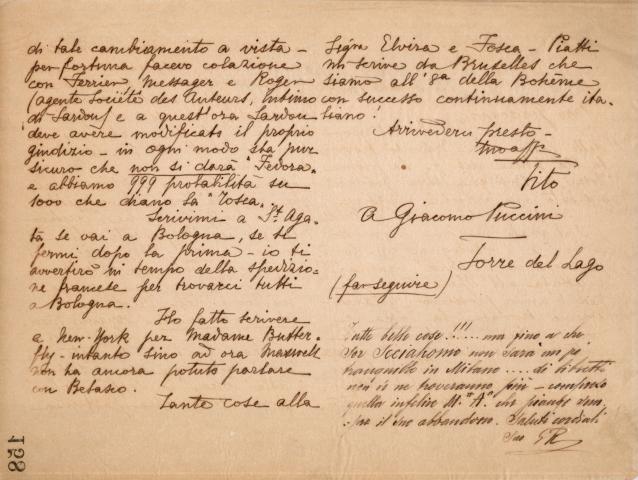 di tale cambiamento a vista -
per fortuna facevo colazione
con Ferrier Messager e Roger
(agente Société des Auteurs, intimo
di Sardou) e a quest'ora Sardou
deve avere modificato il proprio
giudizio - in ogni modo sta pur
sicuro che non si darà "Fedora"
e abbiamo 999 probabilità su
1000 che diano la "Tosca"
Scrivimi a St. Aga-
ta se vai a Bologna, se ti
fermi dopo la prima - io ti
avvertirò in tempo della spedizio-
ne francese per trovarci tutti
a Bologna.
Ho fatto scrivere
a New-York per Madame Butter-
fly - intanto sino ad ora Maxwell
non ha ancora potuto parlare
con Belasco.
Tante cose alla
Sigra Elvira e Fosca - Piatti
mi scrive da Bruxelles che
siamo all' 8a della Bohème
con successo continuamente ita-
liano!
Arrivederci presto -
tuo aff
Tito
A Giacomo Puccini
Torre del Lago
(far seguire)
Tutte belle cose!!! .... ma fino a che
Sor non sarà un po'
tranquillo in Milano .... di libretti
non se ne troveranno più - compreso
quella infelice M. "A." che piange
il suo abbandono. Saluti cordiali
Suo GR
158